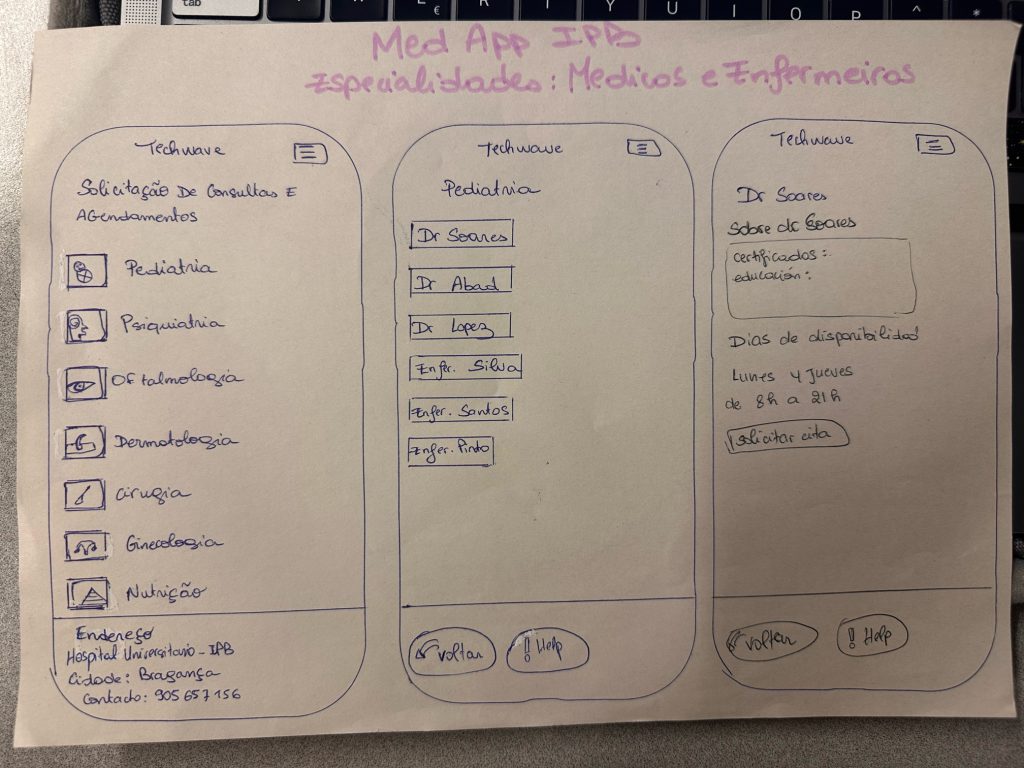 tab
€
R
T
Y
U
I
O
P
^
*
Med App IPB
Especialidades: Medicos e Enfermeiros
Techwave
Solicitação De Consultas E
AGendamentos
Pediatria
Psiquiatria
Oftalmologia
Dermatologia
Cirugia
Ginecologia
Nutrição
Endereço
Hospital Universitario - IPB
Cidade: Bragança
Contado: 905 657 156
Techwave
Pediatria
Dr Soares
Dr Abad
Dr Lopez
Enfer. Silva
Enfer. Santos
Enfer. Pinto
voltar
! Help
Techwave
Dr Soares
Sobre dr Soares
Certificados:
educación:
Dias de disponibilidad
Lunes y Jueves
de 8h a 21h
solicitar cita
voltar
! Help